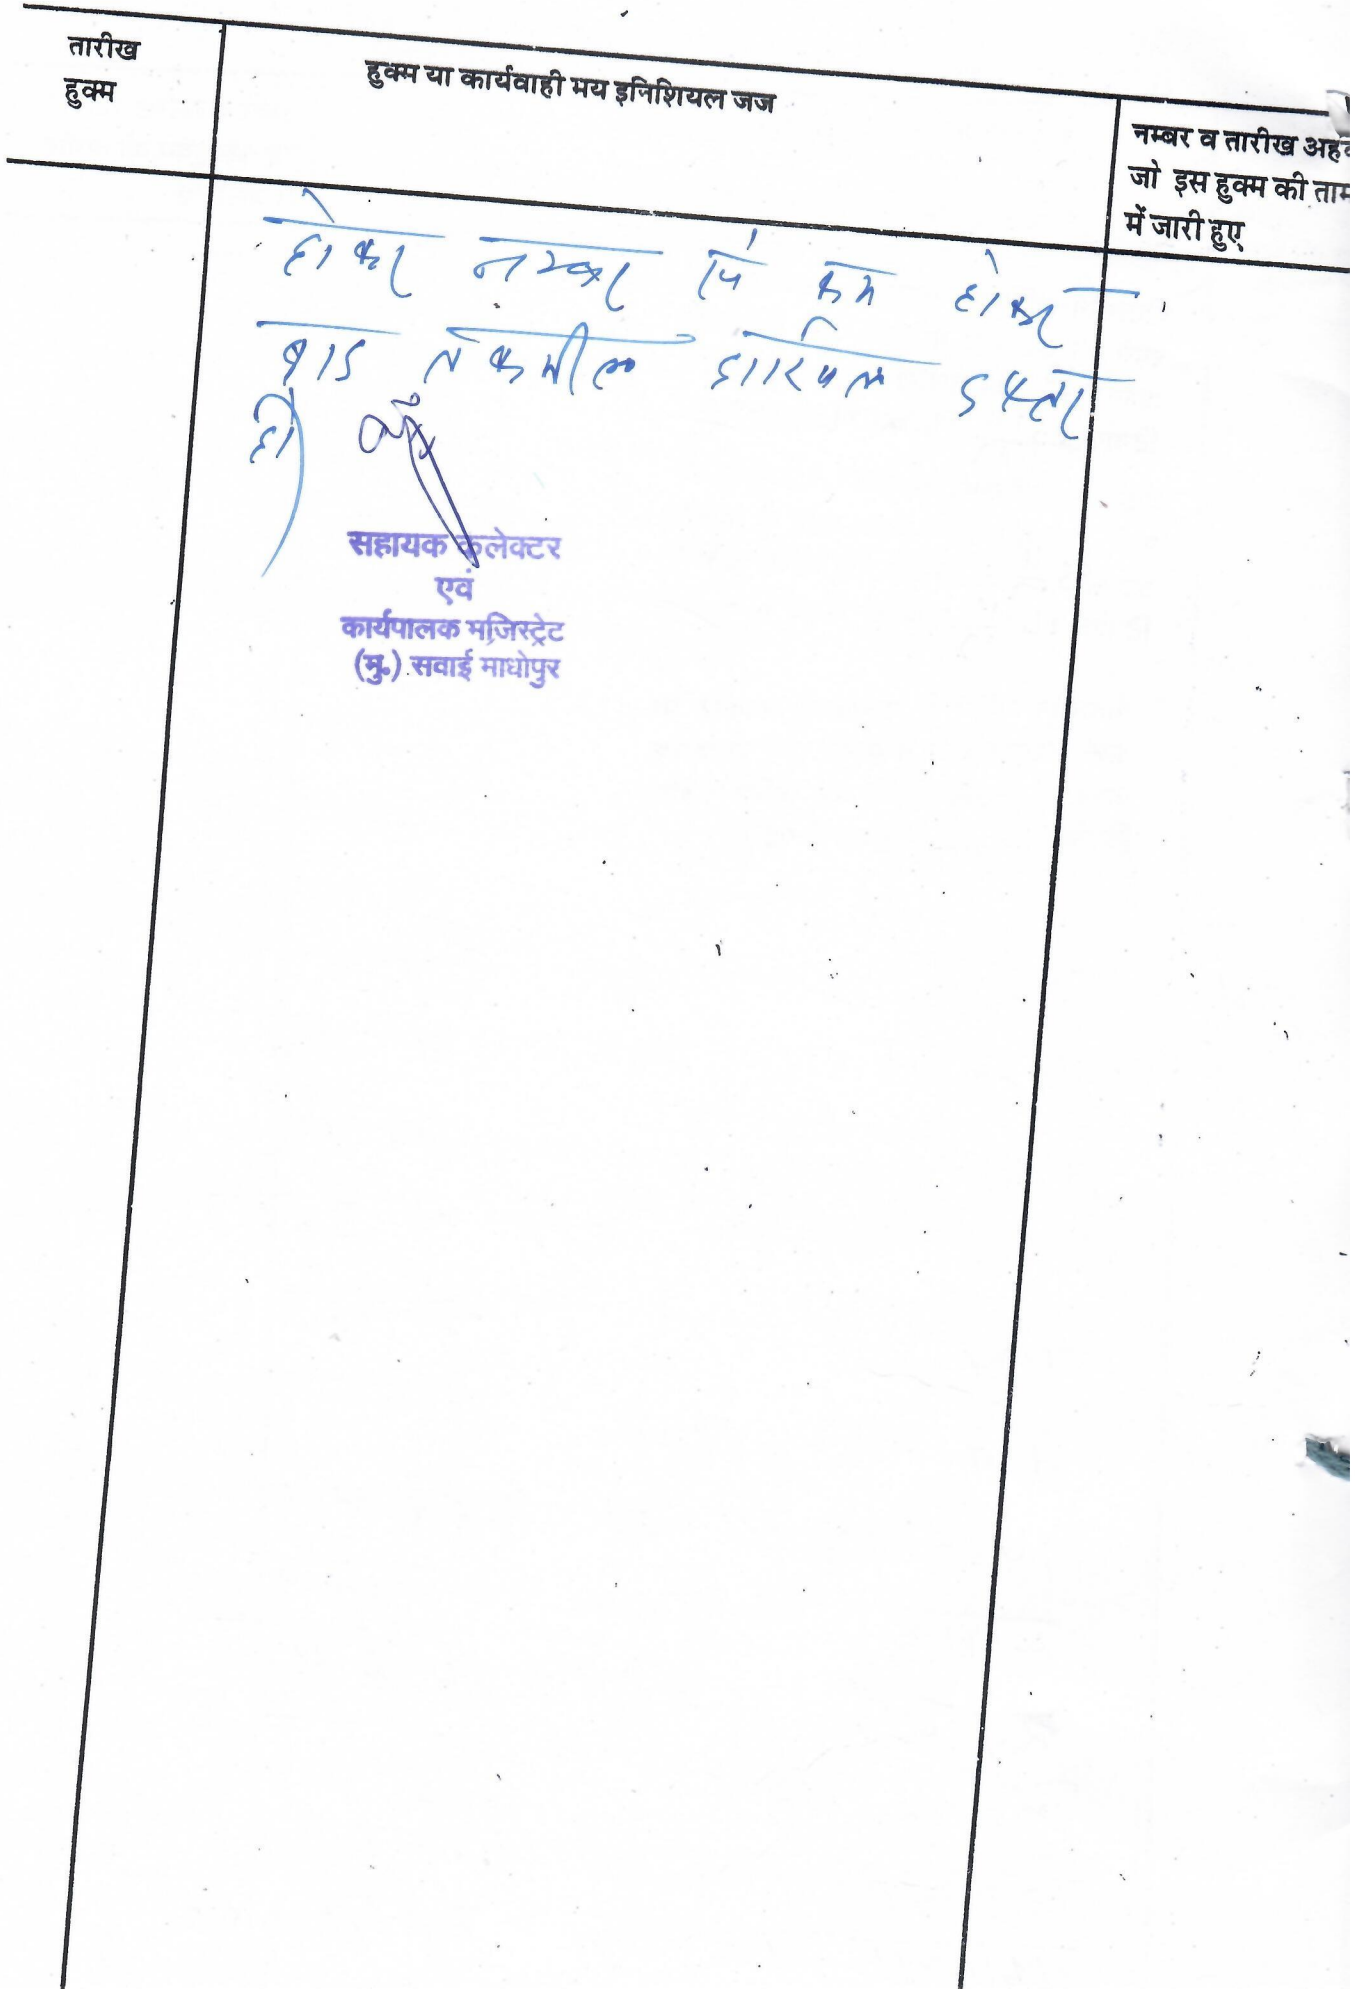 तारीख
हुक्म
हुक्म या कार्यवाही मय इनिशियल जज
नम्बर व तारीख अह
जो इस हुक्म की ताम
में जारी हुए
होकर नम्बर से कम होकर
बाद तकमील दाखिल दफ्तर
हो
सहायक कलेक्टर
एवं
कार्यपालक मजिस्ट्रेट
(मु०) सवाई माधोपुर